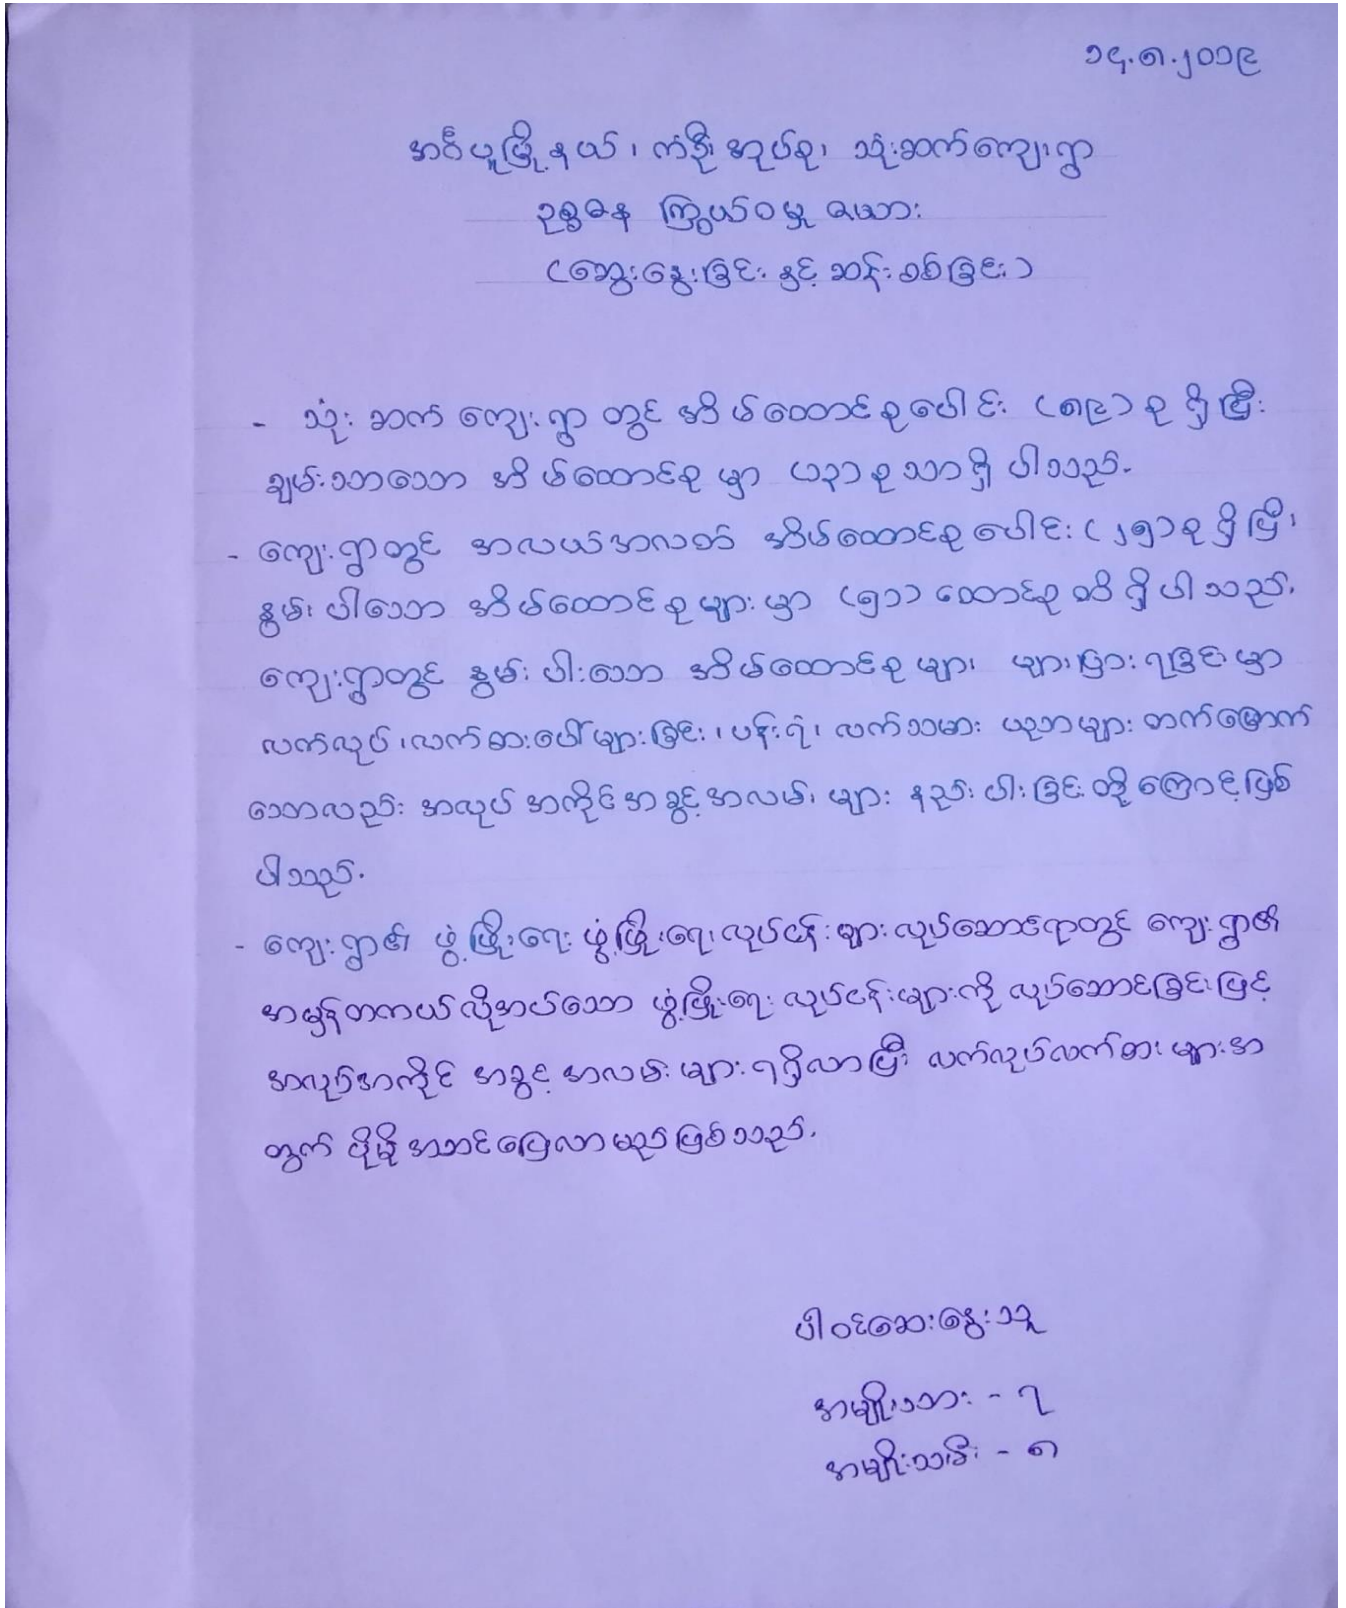 ၁၄.၈.၂၀၁၉
အင်္ဂပူမြို့နယ်၊ ကံဦးအုပ်စု၊ သုံးဆက်ကျေးရွာ
ဥစ္စဓန ကြွယ်ဝမှု ဇယား
(ဆွေးနွေးခြင်း နှင့် ဆန်းစစ်ခြင်း)
- သုံးဆက် ကျေးရွာ တွင် အိမ်ထောင်စုပေါင်း (၈၉) စု ရှိပြီး
ချမ်းသာသော အိမ်ထောင်စု မှာ (၁၃) စုသာရှိ ပါသည်.
- ကျေးရွာတွင် အလယ်အလတ် အိမ်ထောင်စုပေါင်း (၂၅) စု ရှိပြီး
နွမ်းပါးသော အိမ်ထောင်စုများမှာ (၅၁) ထောင်စုထိ ရှိပါသည်.
ကျေးရွာတွင် နွမ်းပါးသော အိမ်ထောင်စုများ များပြားရခြင်းမှာ
လက်လုပ်၊ လက်စားပေါများခြင်း၊ ပန်းရံ၊ လက်သမား ပညာများ တတ်မြောက်
သော်လည်း အလုပ်အကိုင်အခွင့်အလမ်းများ နည်းပါးခြင်းတို့ကြောင့်ဖြစ်
ပါသည်.
- ကျေးရွာ၏ ဖွံ့ဖြိုးရေး ဖွံ့ဖြိုးရေးလုပ်ငန်းများ လုပ်ဆောင်ရာတွင် ကျေးရွာ၏
အမှန်တကယ်လိုအပ်သော ဖွံ့ဖြိုးရေး လုပ်ငန်းများကို လုပ်ဆောင်ခြင်းဖြင့်
အလုပ်အကိုင် အခွင့်အလမ်းများ ရရှိလာပြီး လက်လုပ်လက်စားများအ
တွက် ပိုမို အဆင်ပြေလာမည်ဖြစ်သည်.
ပါဝင်ဆွေးနွေးသူ
အမျိုးသား - ၇
အမျိုးသမီး - ၈